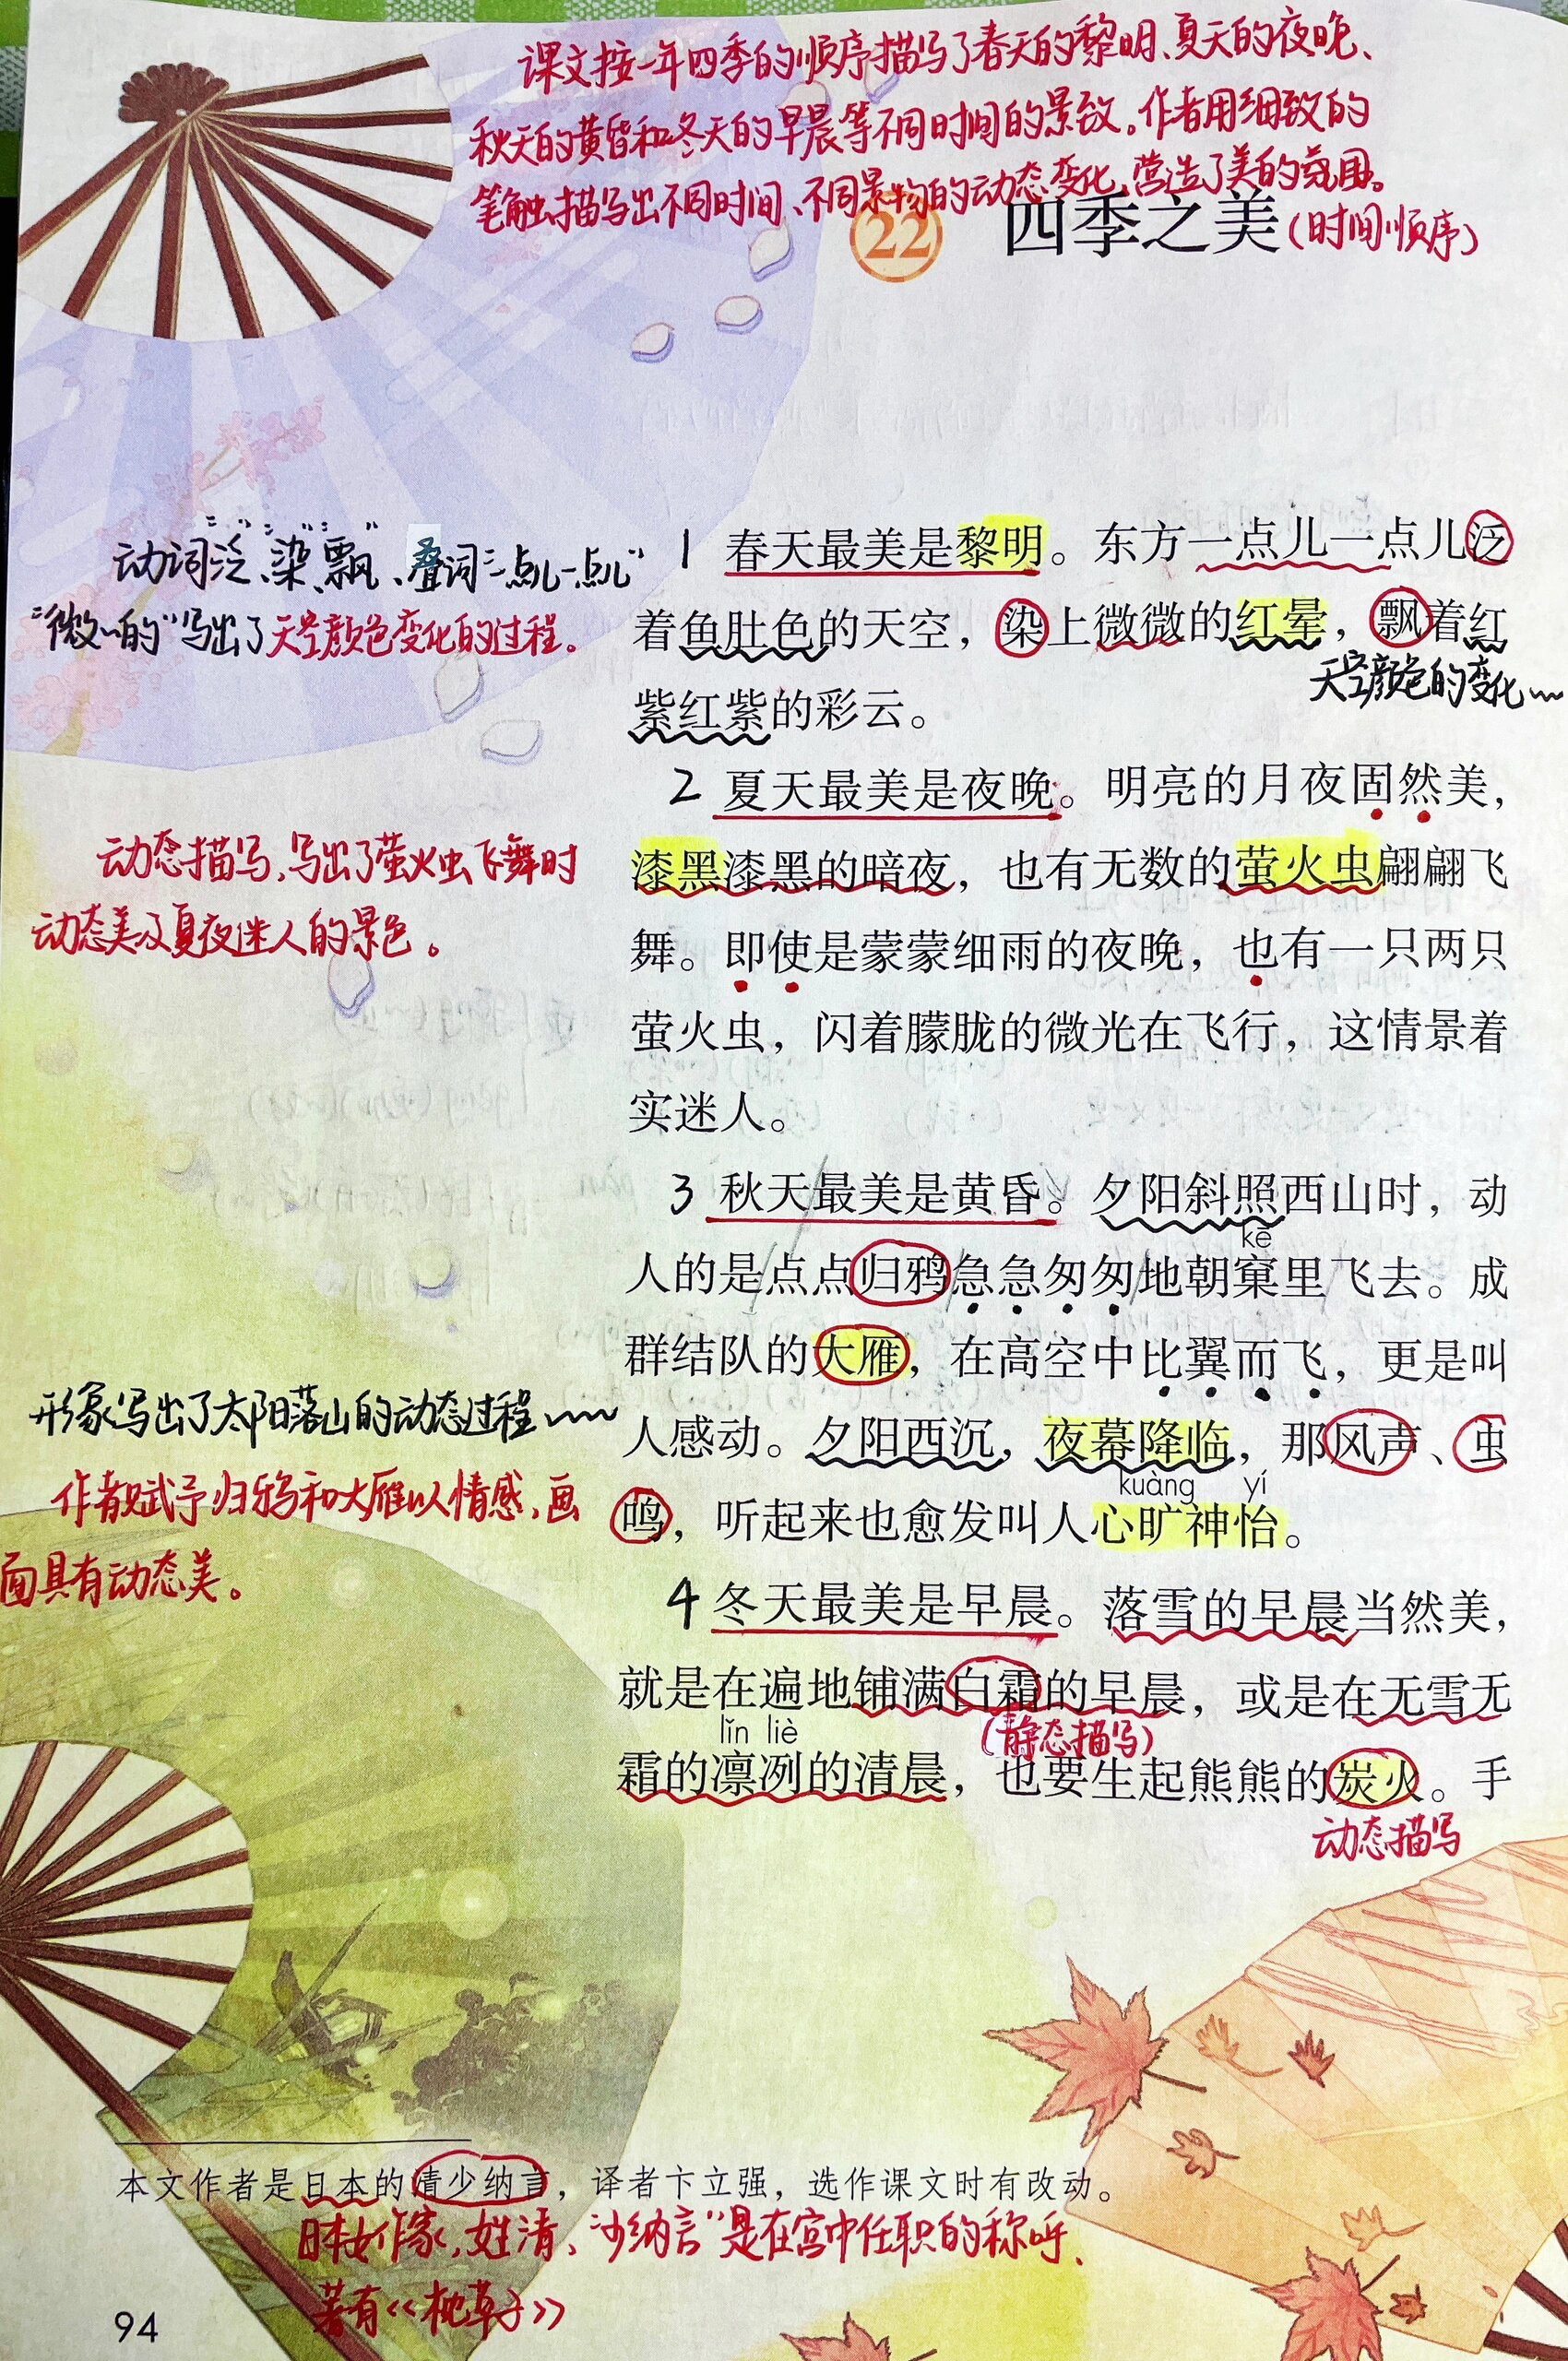 课文按一年四季的顺序描写了春天的黎明、夏天的夜晚、
秋天的黄昏和冬天的早晨等不同时间的景致。作者用细致的
笔触描写出不同时间、不同景物的动态变化,营造了美的氛围。
22 四季之美(时间顺序)
动词“泛”、“染”“飘”、叠词“一点儿一点儿”
“微微的”写出了天空颜色变化的过程。
1 春天最美是黎明。东方一点儿一点儿泛
着鱼肚色的天空,染上微微的红晕,飘着红
天空颜色的变化
紫红紫的彩云。
2 夏天最美是夜晚。明亮的月夜固然美,
动态描写,写出了萤火虫飞舞时
动态美及夏夜迷人的景色。
漆黑漆黑的暗夜,也有无数的萤火虫翩翩飞
舞。即使是蒙蒙细雨的夜晚,也有一只两只
萤火虫,闪着朦胧的微光在飞行,这情景着
实迷人。
3 秋天最美是黄昏。夕阳斜照西山时,动
kē
人的是点点归鸦急急匆匆地朝窠里飞去。成
群结队的大雁,在高空中比翼而飞,更是叫
形象写出了太阳落山的动态过程
人感动。夕阳西沉,夜幕降临,那风声、虫
kuàng yí
作者赋予归鸦和大雁以情感,画
面具有动态美。
鸣,听起来也愈发叫人心旷神怡。
4 冬天最美是早晨。落雪的早晨当然美,
就是在遍地铺满白霜的早晨,或是在无雪无
lǐn liè
(静态描写)
霜的凛冽的清晨,也要生起熊熊的炭火。手
动态描写
本文作者是日本的清少纳言,译者卞立强,选作课文时有改动。
日本女作家,姓清、“少纳言”是在宫中任职的称呼、
著有《枕草子》
94